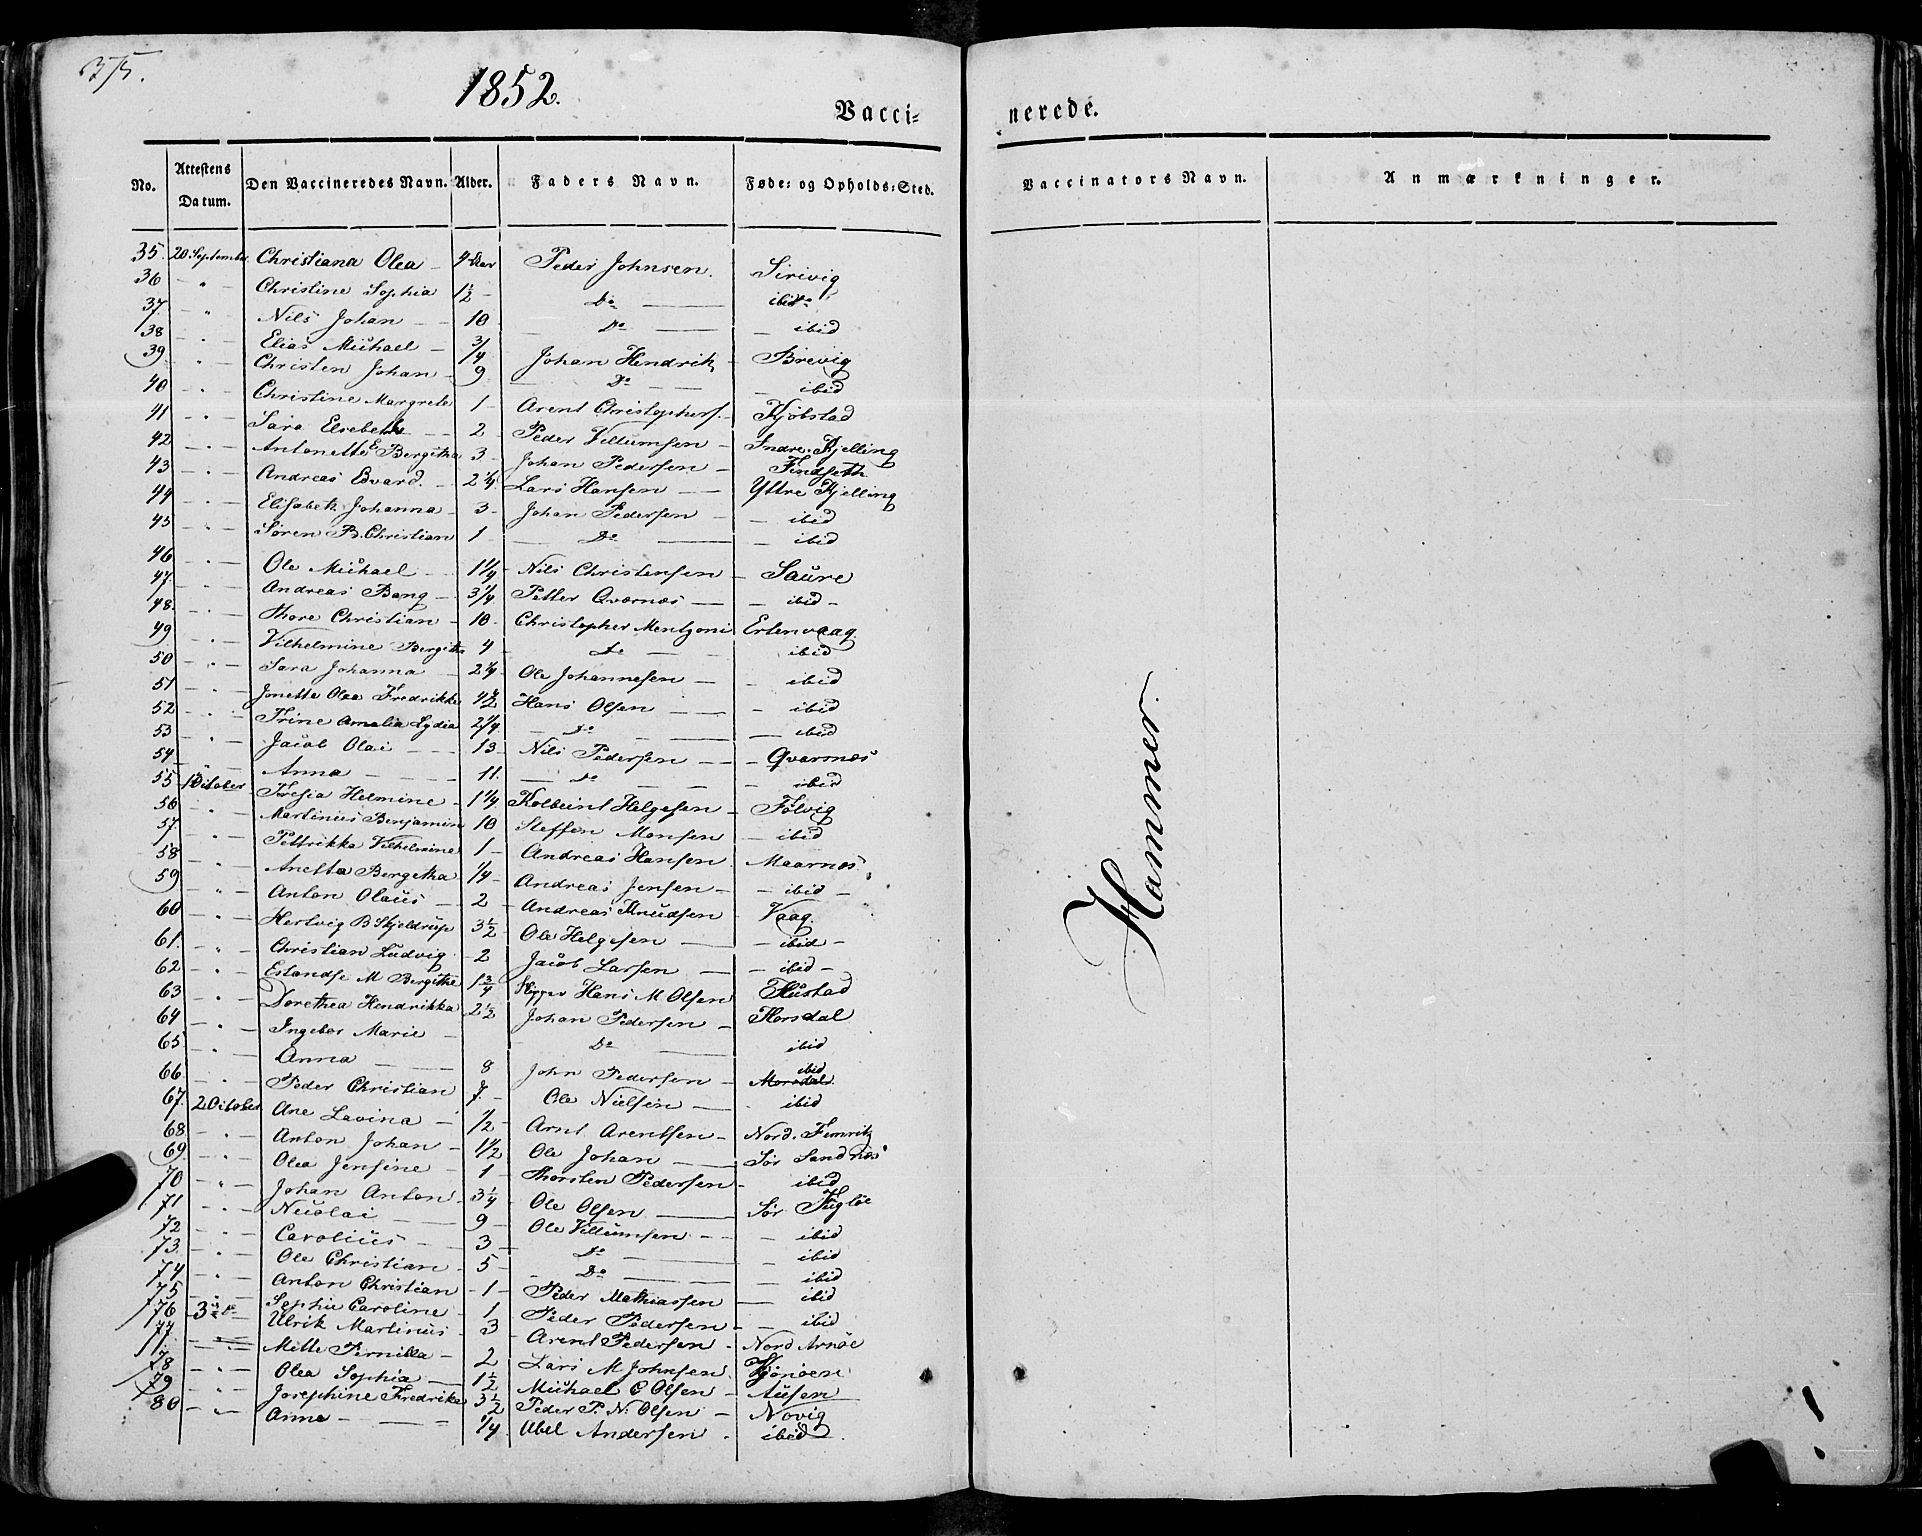 375.
1852.
Vacci= nerede.
No. Attestens Datum. Den Vaccineredes Navn. Alder. Faders Navn. Føde= og Opholds=Sted. Vaccinators Navn. Anmærkninger.
35. 20 September Christiana Olea 4 Aar Peder Johnsen. Sirivig
36 " Christine Sophia 1½ Do ibid
37 " Nils Johan 10 Do ibid
38 " Elias Michael 3/4 Johan Hendrik Brevig
39 " Christen Johan 9 Do ibid
40 " Christine Margrete 1 Arent Christophers. Kjøbstad
41 " Sara Elsebeth 2 Peder Villumsen Indre Kjelling
42 " Antonette E Bergitha 3 Johan Pedersen Findseth
43 " Andreas Edvard. 2¼ Lars Hansen Yttre Kjelling
44 " Elisabeth Johanna 3 Johan Pedersen ibid
45 " Søren B. Christian 1 Do ibid
46 " Ole Michael 1¼ Nils Christensen Saure
47 " Andreas Bang 3¼ Petter Qvarnæs ibid
48. " Thore Christian 10 Christopher Mentzoni Ertenvaag.
49 " Vilhelmine Bergitha 4 Do ibid
50 " Sara Johanna 2¼ Ole Johannesen ibid
51 " Jonette Olea Fredrikke 4½ Hans Olsen ibid
52 " Trine Amalia Lydia 2¼ Do ibid
53 " Jacob Olai 13 Nils Pedersen Qvarnæs
54 " Anna 11. Do ibid
55 1 October Tresia Helmine 1¼ Kolbeint Helgesen Følvig
56 " Martinus Benjamin 10 Steffen Monsen ibid
57. " Pettrikka Vilhelmine 1 Andreas Hansen Maarnæs
58 " Anetta Bergetha 1/4 Andreas Jensen ibid
59 " Anton Olaus 2 Andreas Knudsen Vaag.
60 " Hertvig B Skjeldrup 3½ Ole Helgesen ibid
61. " Christian Ludvig 2 Jacob Larsen ibid
62 " M Bergithe 1¾ Skipper Hans M Olsen Hustad
63 " Dorethea Hendrikka 2½ Johan Pedersen Horsdal
64 " Ingebor Marie Do ibid
65 " Anna 8 John Pedersen ibid
66 " Peder Christian 7 Ole Nielsen ibid
67. 2 October Ane Lavina 1/2 Arnt Arentsen Nord.
68 " Anton Johan 1½ Ole Johan Sør Sandnæs
69 " Olea Jensine 1 Thorsten Pedersen ibid
70 " Johan Anton 3¼ Ole Olsen Sør Fugløe
71 " Nicolai 9 Ole Villumsen ibid
72 " Carolius 3 Do ibid
73. " Ole Christian 5 Do ibid
74 " Anton Christian 1 Peder Mathiassen ibid
75 " Sophie Caroline 1 Peder Pedersen ibid
76 3 Do Ulrik Martinus 3 Arent Pedersen Nord Arnøe
77 " Mette Pernilla 2 Lars M Johnsen Kjønøen
78 " Olea Sophia 1½ Michael C Olsen Ausen
79 " Josephine Fredrike 3½ Peder P. N. Olsen Novig
80 " Anna 1/4 Abel Andersen ibid
Hammer.